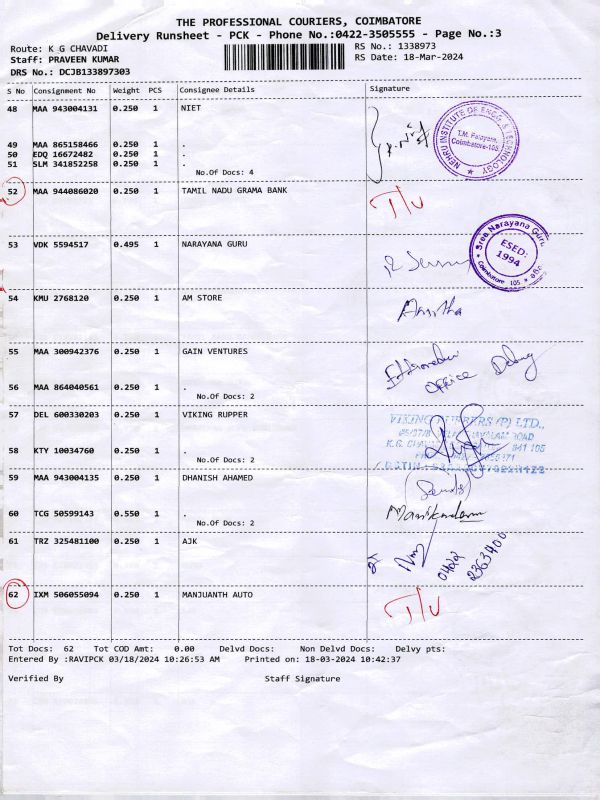 THE PROFESSIONAL COURIERS, COIMBATORE
Delivery Runsheet - PCK - Phone No.:0422-3505555 - Page No.:3
Route: K G CHAVADI RS No.: 1338973
Staff: PRAVEEN KUMAR RS Date: 18-Mar-2024
DRS No.: DCJB133897303
S No Consignment No Weight PCS Consignee Details Signature
48 MAA 943004131 0.250 1 NIET
NEHRU INSTITUTE OF ENGG. & TECHNOLOGY
T.M. Palayam,
Coimbatore-105
49 MAA 865158466 0.250 1 .
50 EDQ 16672482 0.250 1 .
51 SLM 341852258 0.250 1 .
No.Of Docs: 4
52 MAA 944086020 0.250 1 TAMIL NADU GRAMA BANK
53 VDK 5594517 0.495 1 NARAYANA GURU
Sree Narayana Guru
ESED:
1994
Coimbatore 105
54 KMU 2768120 0.250 1 AM STORE
55 MAA 300942376 0.250 1 GAIN VENTURES
office
56 MAA 864040561 0.250 1 .
No.Of Docs: 2
57 DEL 600330203 0.250 1 VIKING RUPPER
58 KTY 10034760 0.250 1 .
No.Of Docs: 2
59 MAA 943004135 0.250 1 DHANISH AHAMED
60 TCG 50599143 0.550 1 .
No.Of Docs: 2
61 TRZ 325481100 0.250 1 AJK
0422
2363400
62 IXM 506055094 0.250 1 MANJUANTH AUTO
Tot Docs: 62 Tot COD Amt: 0.00 Delvd Docs: Non Delvd Docs: Delvy pts:
Entered By :RAVIPCK 03/18/2024 10:26:53 AM Printed on: 18-03-2024 10:42:37
Verified By Staff Signature